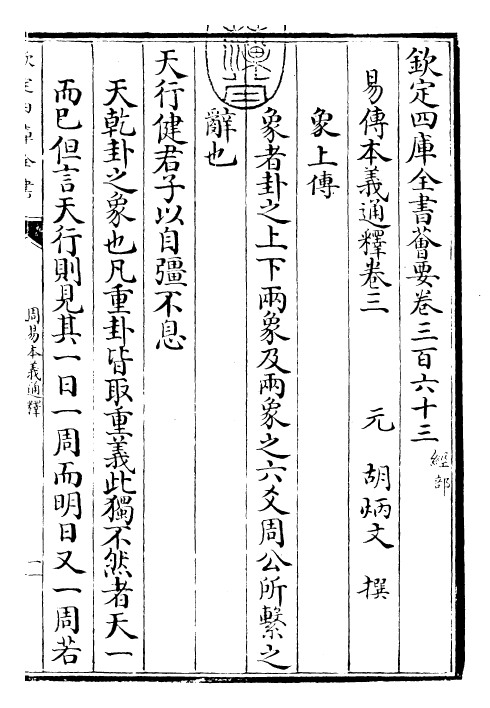 欽定四庫全書薈要卷三百六十三 經部
易傳本義通釋卷三 元 胡炳文 撰
象上傳
象者卦之上下兩象及兩象之六爻周公所繫之
辭也
天行健君子以自彊不息
天乾卦之象也凡重卦皆取重義此獨不然者天一
而已但言天行則見其一日一周而明日又一周若
欽定四庫全書
周易本義通釋